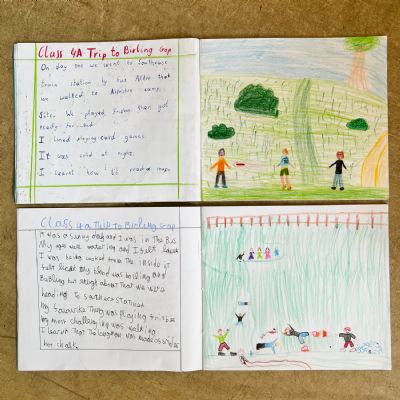 Class 4A Trip to Birling Gap
On day one we went to Southease
train station by bus. After that
we walked to Alfriston camp
Site. We played frisbee then got
ready for bed.
I liked playing card games.
It was cold at night.
I learnt how to read a map.
Class 4a Trip to Birling Gap
It was a sunny day and I was in The Bus
My eyes were watering and I felt
I was being cooked from The inside it
felt like my blood was boiling and
Bubling but enugh about That we were
heading To southease STation
my favourite Thing was playing frisbee
my most challenging was walking
I learnt That The long man was made as bricks
not chalk.